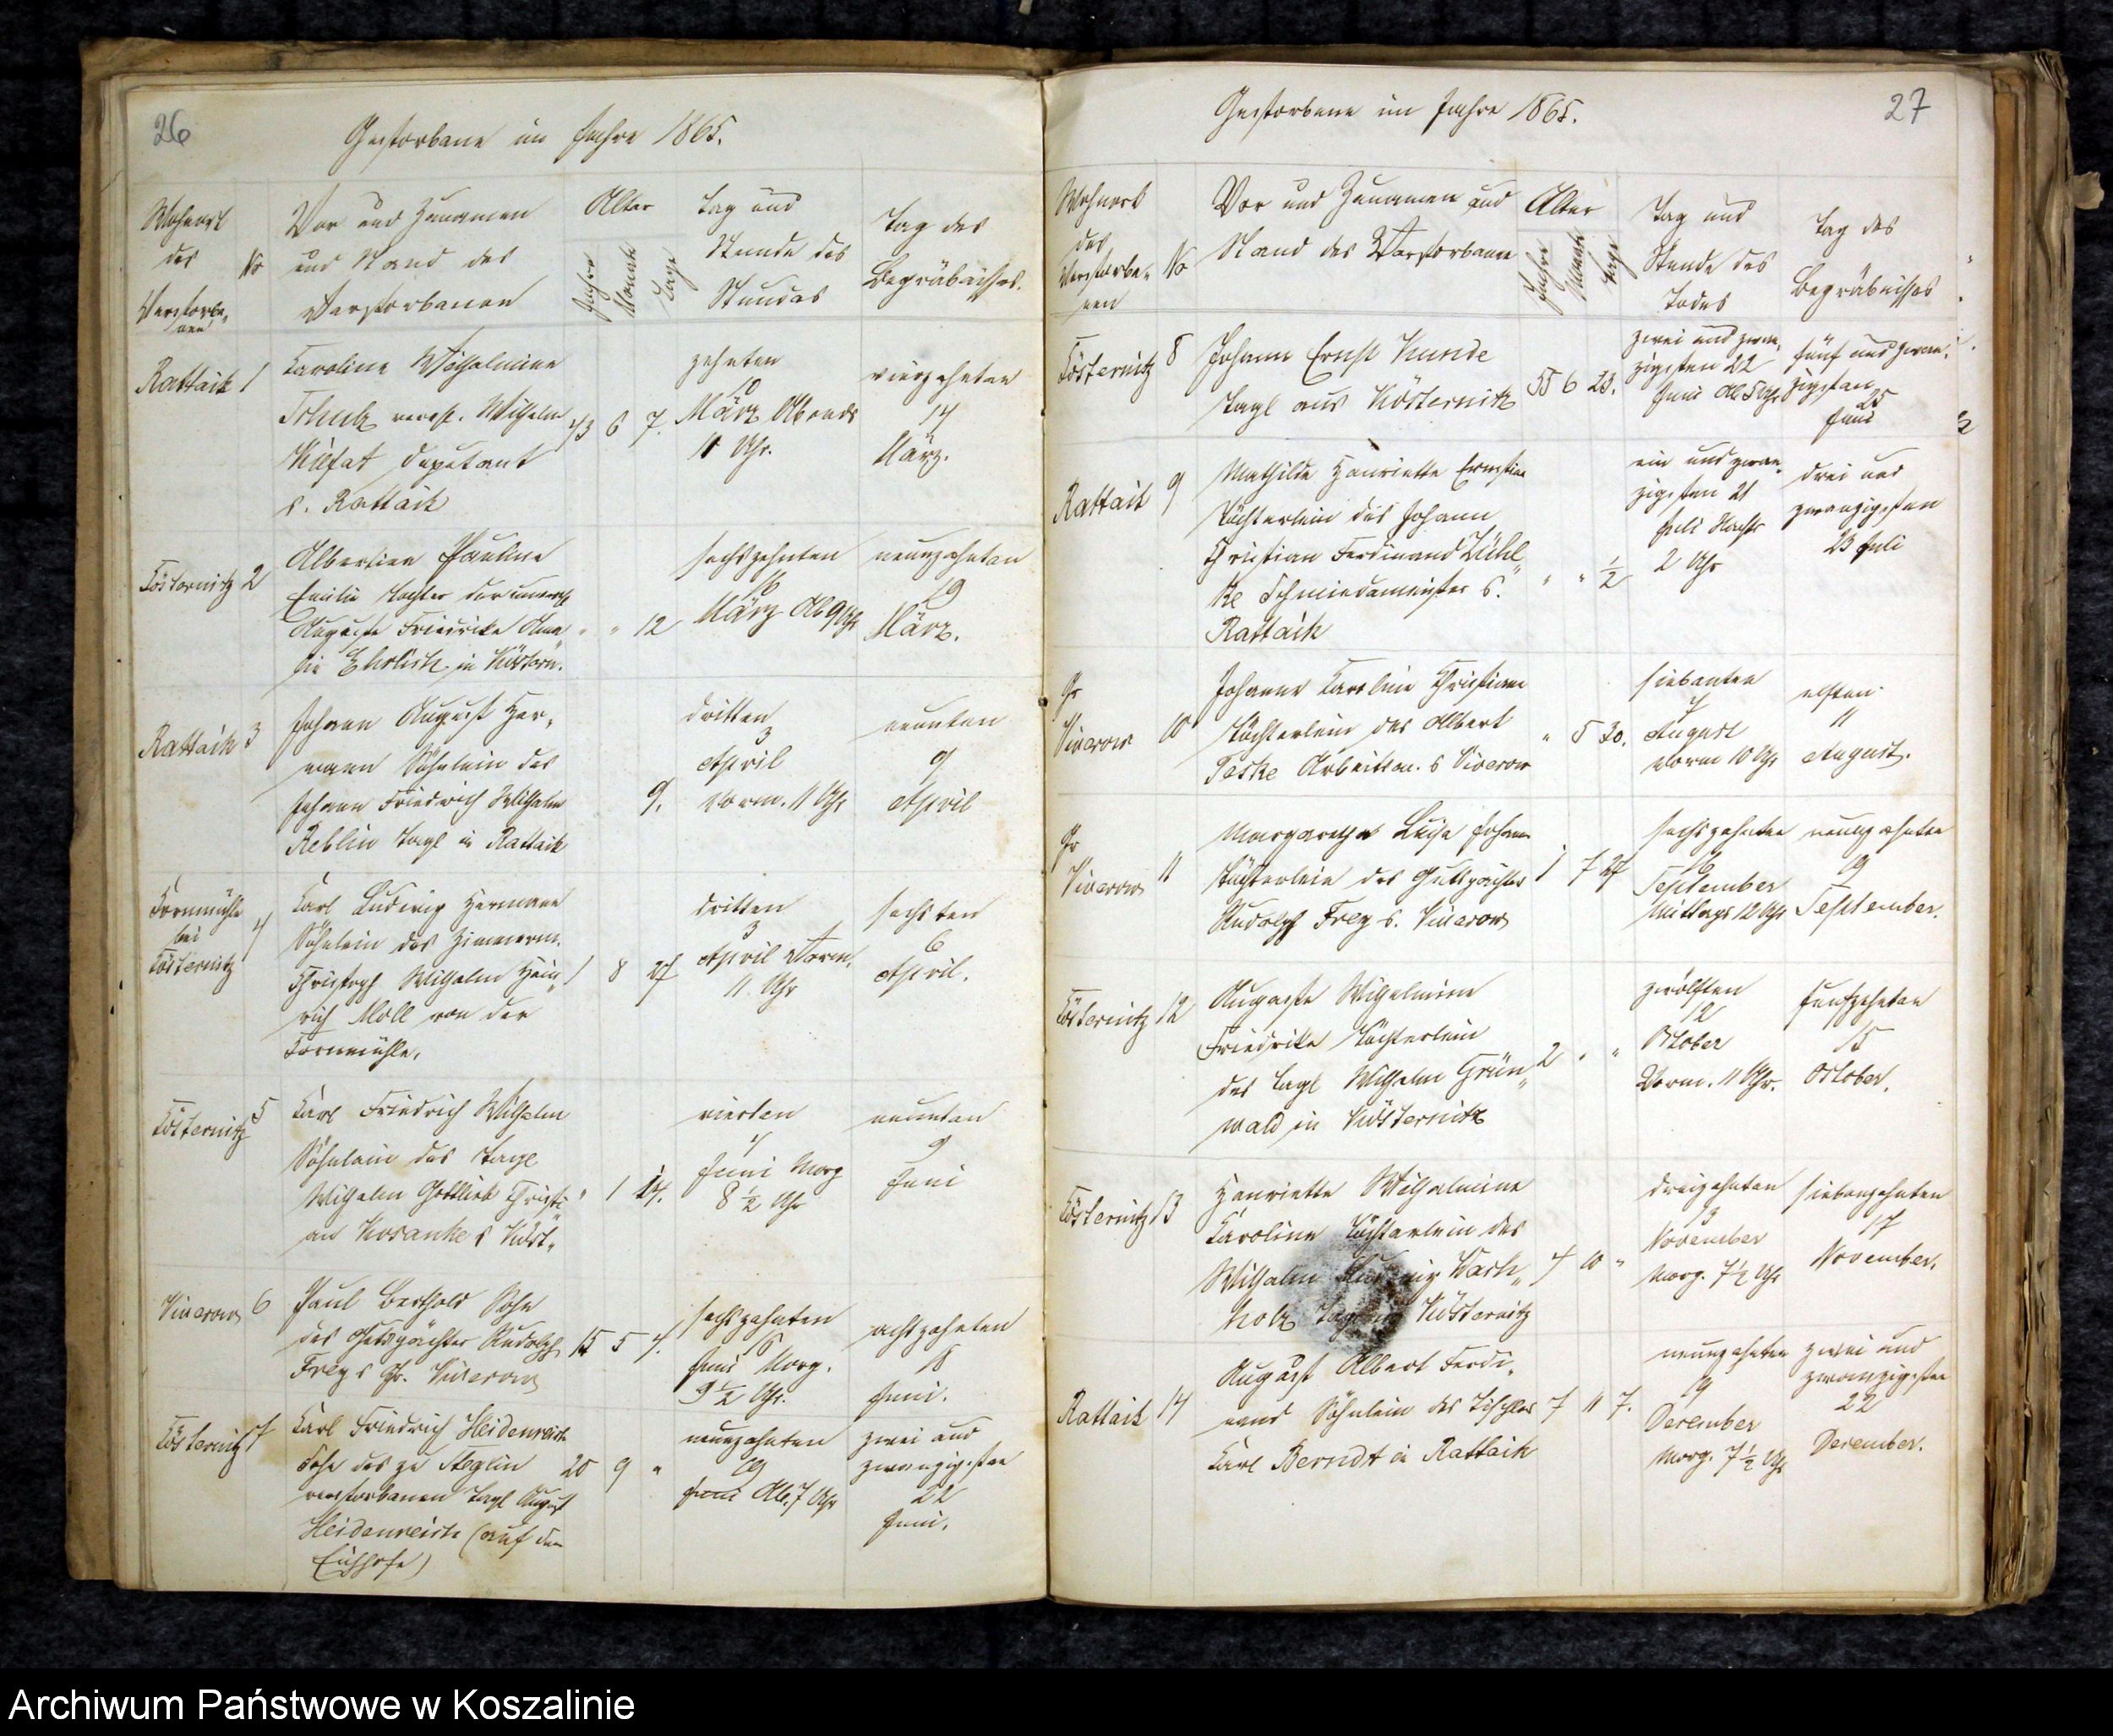 26
Gestorbene im Jahre 1865.
Wohnort
des
Verstorbe-
nen
No
Vor und Zunamen
und Stand des
Verstorbenen
Alter
Jahre
Monate
Tage
Tag und
Stunde des
Stundes
Tag des
Begräbnisses.
Rattaik 1
Caroline Wilhelmine
Schulz verest. Wilhelm
Deputant
s. Rattaik
43 6 7.
zehnten
10
März Abends
11 Uhr.
vierzehnten
14
März.
Cösternitz 2
Albertine Pauline
Emilie Tochter der unvereh
Auguste Friedrike Ama
lie Ehrlich in Köstern.
" " 12
sechszehnten
16
März Ab 9 Uhr
neunzehnten
19
März.
Rattaik 3
Johann August Her-
mann Söhnlein des
Johann Friedrich Wilhelm
Reblin Tagl in Rattaik
9.
dritten
3
April
Vorm. 11 Uhr
neunten
9
April
Kornmühle
bei
Cösternitz
4
Carl Ludwig Hermann
Söhnlein des Zimmerm.
Christoph Wilhelm Hein
rich Moll von der
Kornmühle.
1 8 27
dritten
3
April Vorm.
11 Uhr
sechsten
6
April.
Cösternitz 5
Carl Friedrich Wilhelm
Söhnlein des Tagl
Wilhelm Gottlieb Christi
an Kosanke s Köst.
" 1 14.
vierten
4
Juni Morg
8 ½ Uhr
neunten
9
Juni
Viverow 6
Paul Berthold Sohn
des Gutspächter Rudolph
Frey s Gr. Viverow
15 5 4.
sechszehnten
16
Juni Morg.
9 ½ Uhr.
achtzehnten
18
Juni.
Cösternitz 7
Carl Friedrich Heidenreich
Sohn des zu Steglin
verstorbenen Tagl August
Heidenreich (auf dem
20 9 "
neunzehnten
19
Juni Ab. 7 Uhr
zwei und
zwanzigsten
22
Juni.
27
Gestorbene im Jahre 1865.
Wohnort
des
Verstorbe-
nen
No
Vor und Zunamen und
Stand des Verstorbenen
Alter
Jahre
Monate
Tage
Tag und
Stunde des
Todes
Tag des
Begräbnisses
Cösternitz 8
Johann Ernst Kunde
Tagl aus Kösternitz
55 6 23.
zwei und zwan-
zigsten 22
Juni Ab 5 Uhr
fünf und zwan-
zigsten
25
Juni
Rattaik 9
Mathilde Henriette Ernestine
Töchterlein des Johann
Christian Ferdinand Lühl-
ke Schmiedemeister s.
Rattaik
" " ½
ein und zwan-
zigsten 21
Juli Nachts
2 Uhr
drei und
zwanzigsten
23 Juli
Gr
Viverow 10
Johanne Caroline Christiane
Töchterlein des Albert
Teske Arbeitsm. s Viverow
" 5 30.
siebenten
7
August
Vorm 10 Uhr
elften
11
August.
Gr
Viverow 11
Margarethe Luise Johanne
Töchterlein des Gutspächter
Rudolph Frey s. Viverow
1 7 27
sechszehnten
16
September
Mittags 12 Uhr
neunzehnten
19
September.
Cösternitz 12
Auguste Wilhelmine
Friedrike Töchterlein
des Tagl Wilhelm Grün
wald in Kösternitz
2 " "
zwölften
12
October
Vorm. 11 Uhr.
funfzehnten
15
October.
Cösternitz 13
Henriette Wilhelmine
Caroline Töchterlein des
Wilhelm Wach-
holz Kösternitz
4 10 "
dreizehnten
13
November
Morg. 7 ½ Uhr
siebenzehnten
17
November.
Rattaik 14
August Albert Ferdi-
nand Söhnlein des Tischler
Carl Berndt in Rattaik
7 11 7.
neunzehnten
19
December
Morg. 7 ½ Uhr
zwei und
zwanzigsten
22
December.
Archiwum Państwowe w Koszalinie